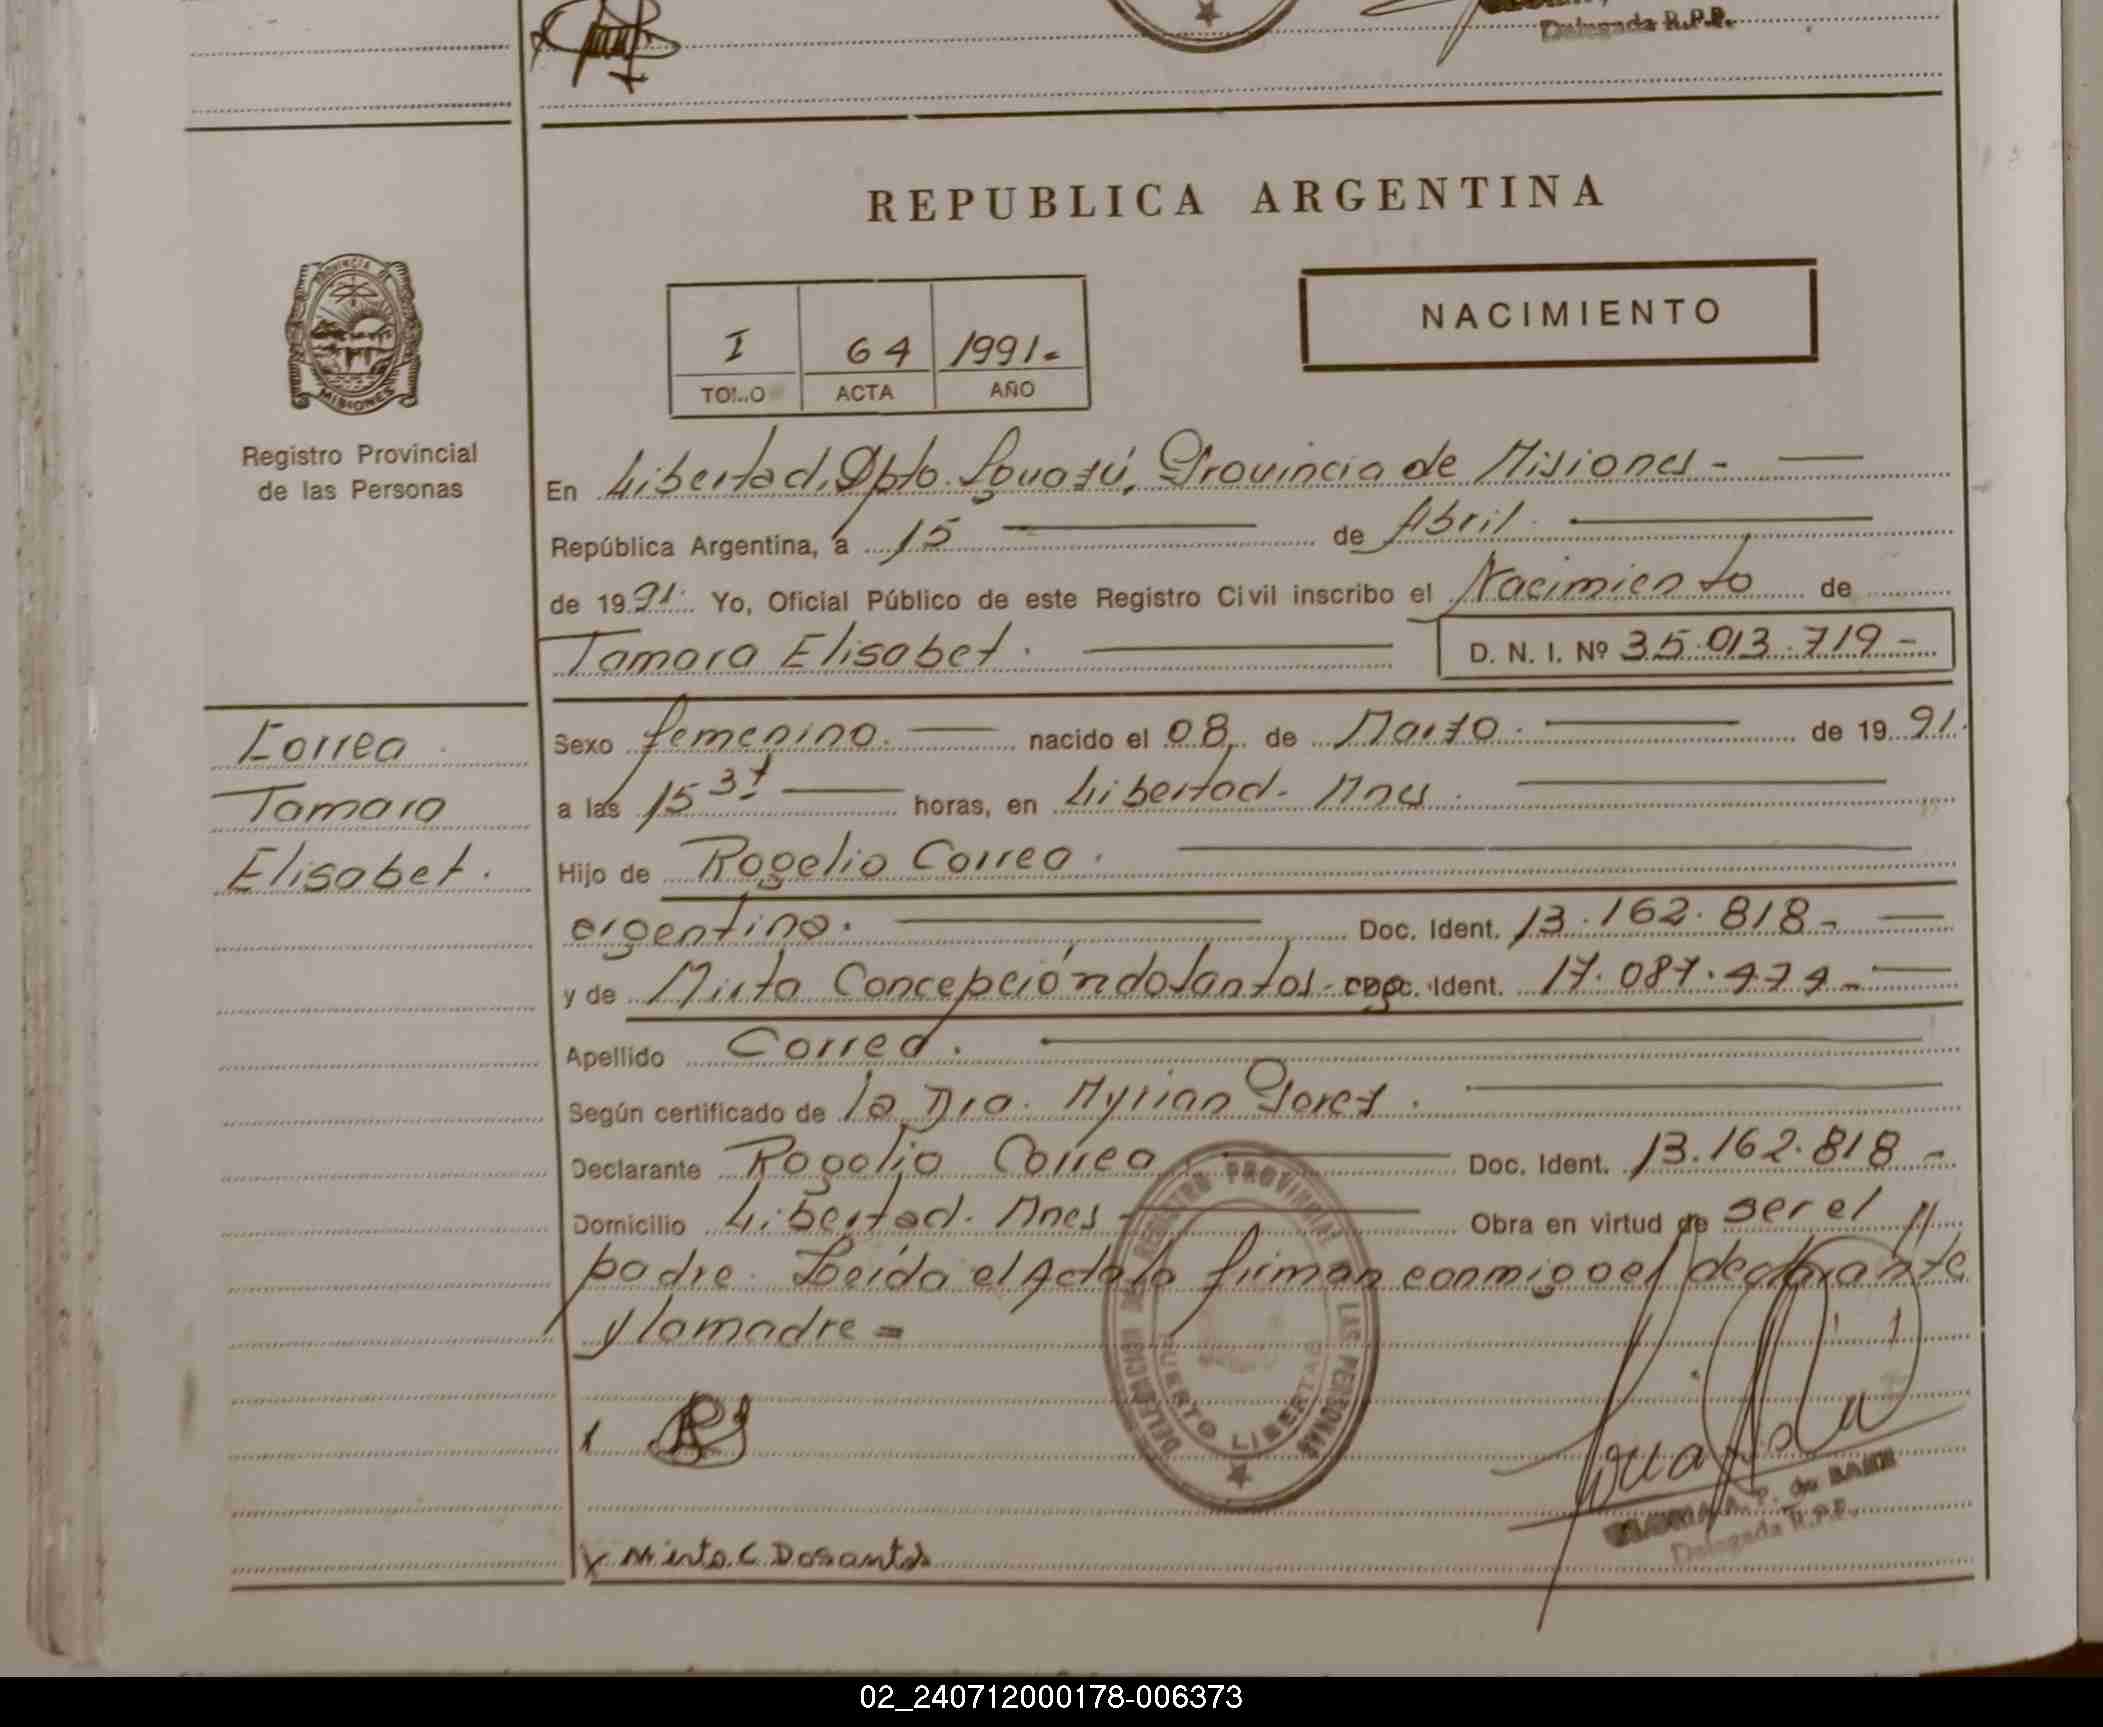 Delegada R.P.P.
REPUBLICA ARGENTINA
PROVINCIA DE
MISIONES
Registro Provincial
de las Personas
NACIMIENTO
I 64 1991.-
TOMO ACTA AÑO
En Libertad, Dpto. Iguazú, Provincia de Misiones -
República Argentina, a 15 de Abril.
de 1991. Yo, Oficial Público de este Registro Civil inscribo el Nacimiento de
Tamara Elisabet. D. N. I. Nº 35.013.719-
Correa
Tamara
Elisabet.
Sexo femenino. nacido el 08 de Marzo. de 1991.
a las 15 37 horas, en Libertad. Mnes.
Hijo de Rogelio Correa.
argentino. Doc. Ident. 13.162.818-
y de Mirta Concepción dosSantos. Doc. Ident. 17.087.474-
Apellido Correa.
Según certificado de la Dra. Myrian Perez.
Declarante Rogelio Correa Doc. Ident. 13.162.818-
Domicilio Libertad. Mnes - Obra en virtud de ser el //
padre. Leída el Acta la firman conmigo el declarante
y la madre =
DELEGACION DEL REGISTRO PROVINCIAL DE LAS PERSONAS
PUERTO LIBERTAD
x
P. de
Delegada R.P.P.
x Mirta C. Dosantos
02_240712000178-006373